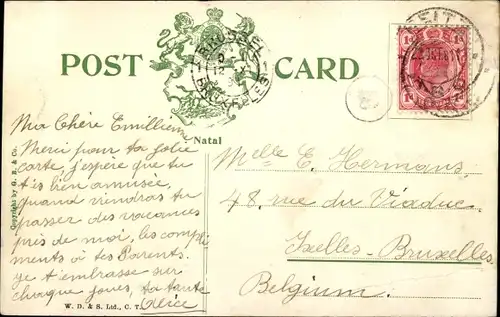 POST CARD
BRUXELLES
Natal
1d 1d
Ma Chère Emillienne
Merci pour ta jolie
carte j'espère que tu
t'es bien amusée
Quand viendras tu
passer des vacances
près de moi, les compli
ments à tes Parents.
je t'embrasse sur
chaque joues, ta tante
Alice
Melle E. Hermans,
48 rue du Viaduc
Ixelles-Bruxelles
Belgium.
Copyright by G. B. & Co.
W. D. & S. Ltd., C. T.